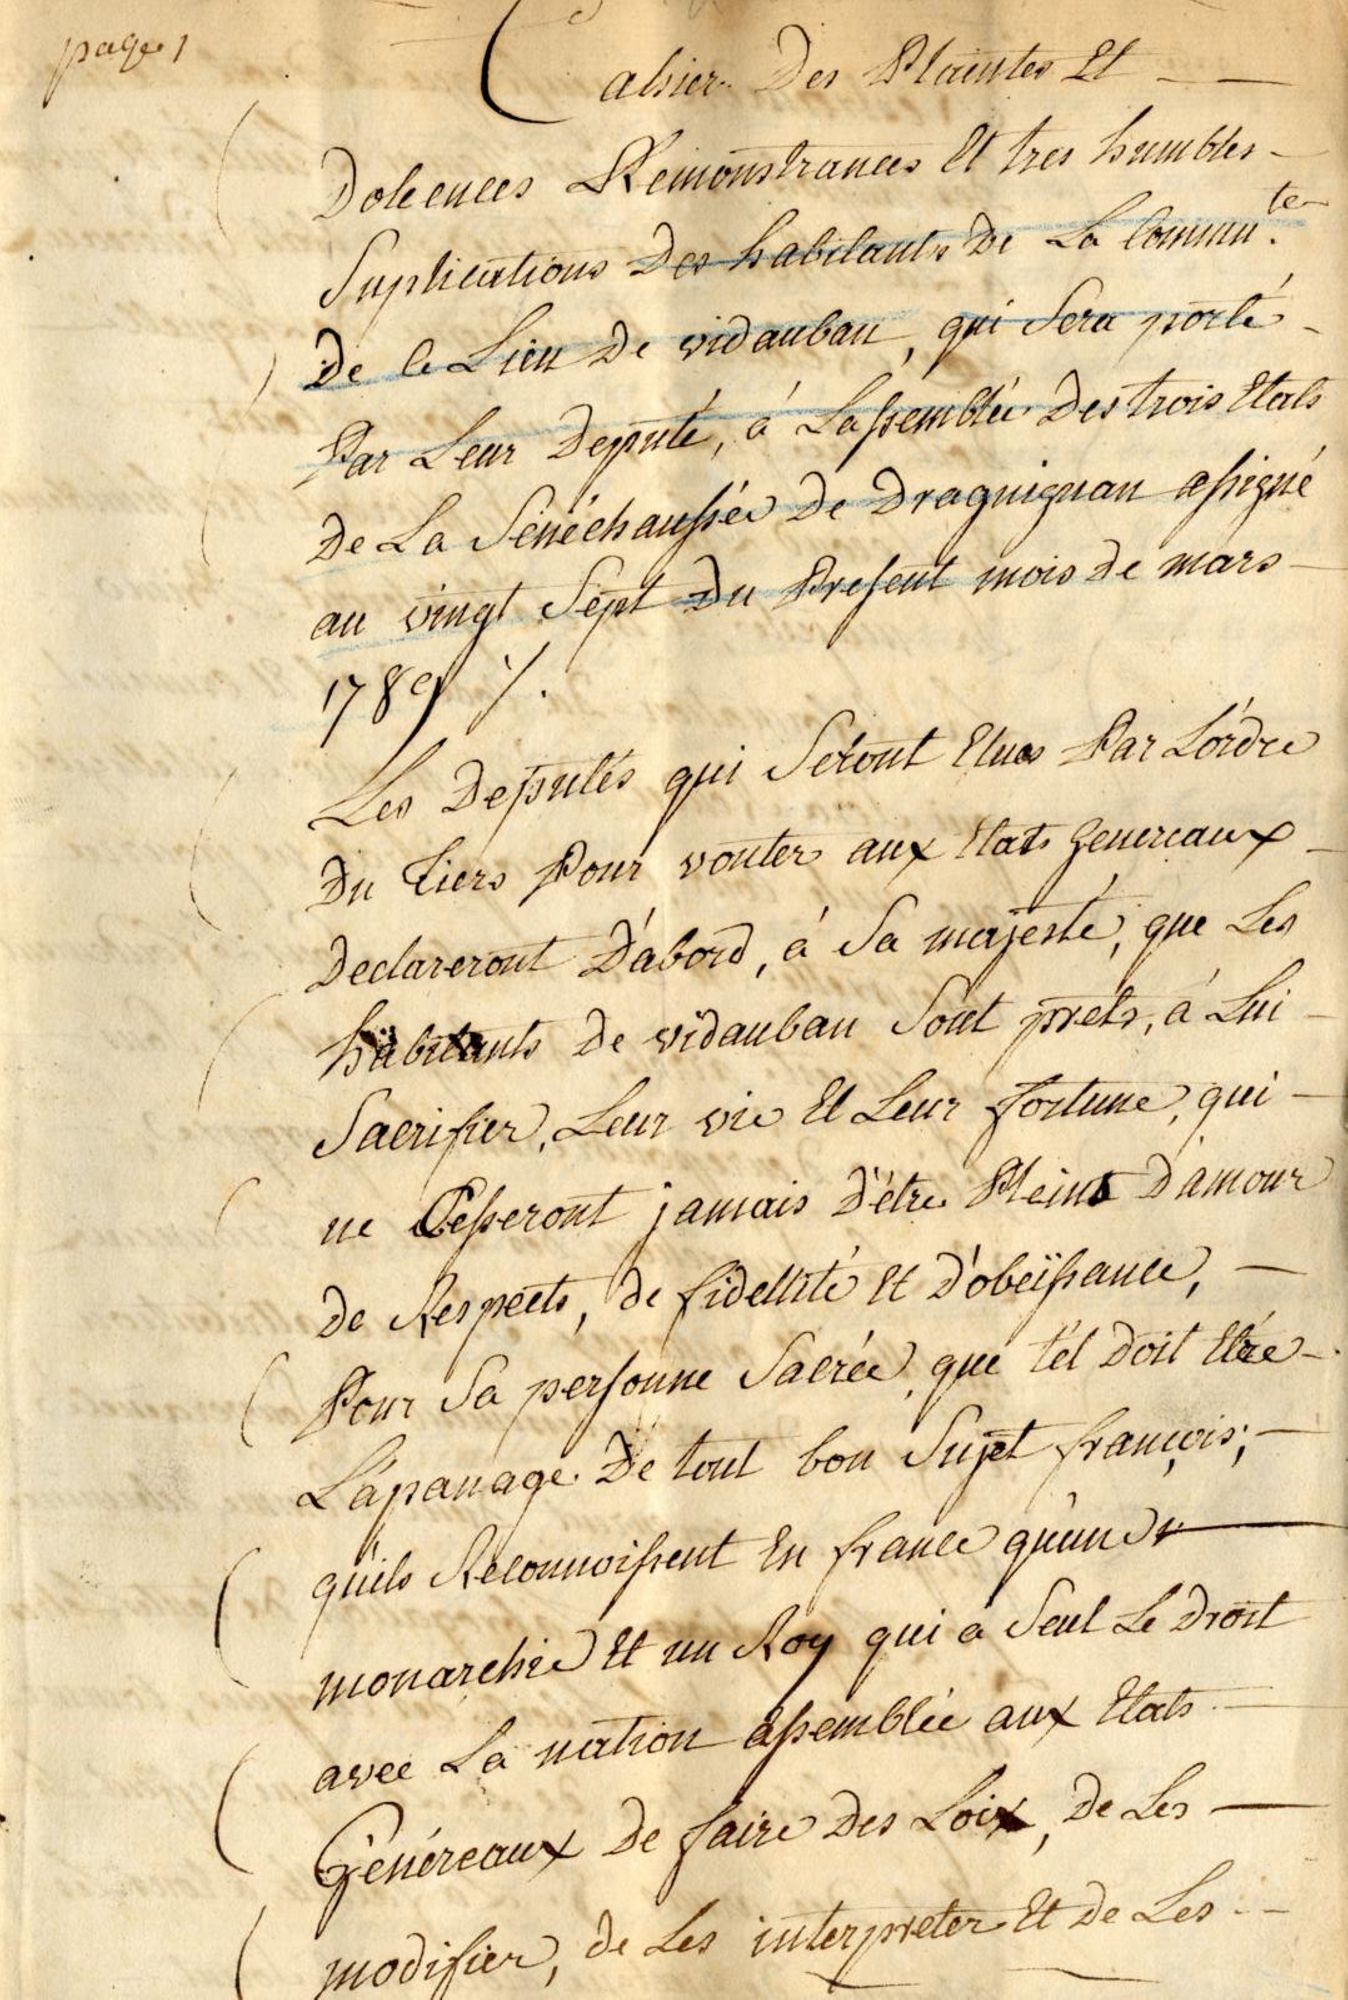 page 1
Cahier Des Plaintes Et
Doleences Remonstrances Et tres humbles
Suplications Des habitants De La Commu.te
De ce Lieu De vidauban, qui Sera porté
Par Leur Deputé, á Lassemblée Des trois Etats
De La Sénéchaussée De Draguignan assigné
au vingt Sept Du Present mois de mars
1789 ./.
Les Deputés qui Séront Elues Par L'ordre
Du Tiers Pour vouter aux Etats Genereaux
Declareront D'abord, á Sa majesté, que Les
habitants de vidauban Sont prets, á Lui
Sacrifier, Leur vie Et Leur fortune, qui
ne Cesseront jamais D'étre Pleins D'amour
de Respects, de fidellité Et D'obeïssance,
Pour Sa personne Sacrée, que tél Doit Etre
L'apanage De tout bon Sujet françois;
qu'ils Reconnoissent En france qu'une
monarchie Et un Roy qui a Seul Le Droit
avec La nation assemblée aux Etats
Généreaux De faire Des Loix, De Les
modifier, de Les interpreter Et De Les